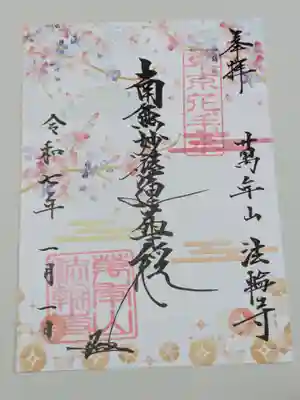 奉拝
萬年山 法輪寺
東京花手水
南無妙法蓮華経
令和七年 一月一日